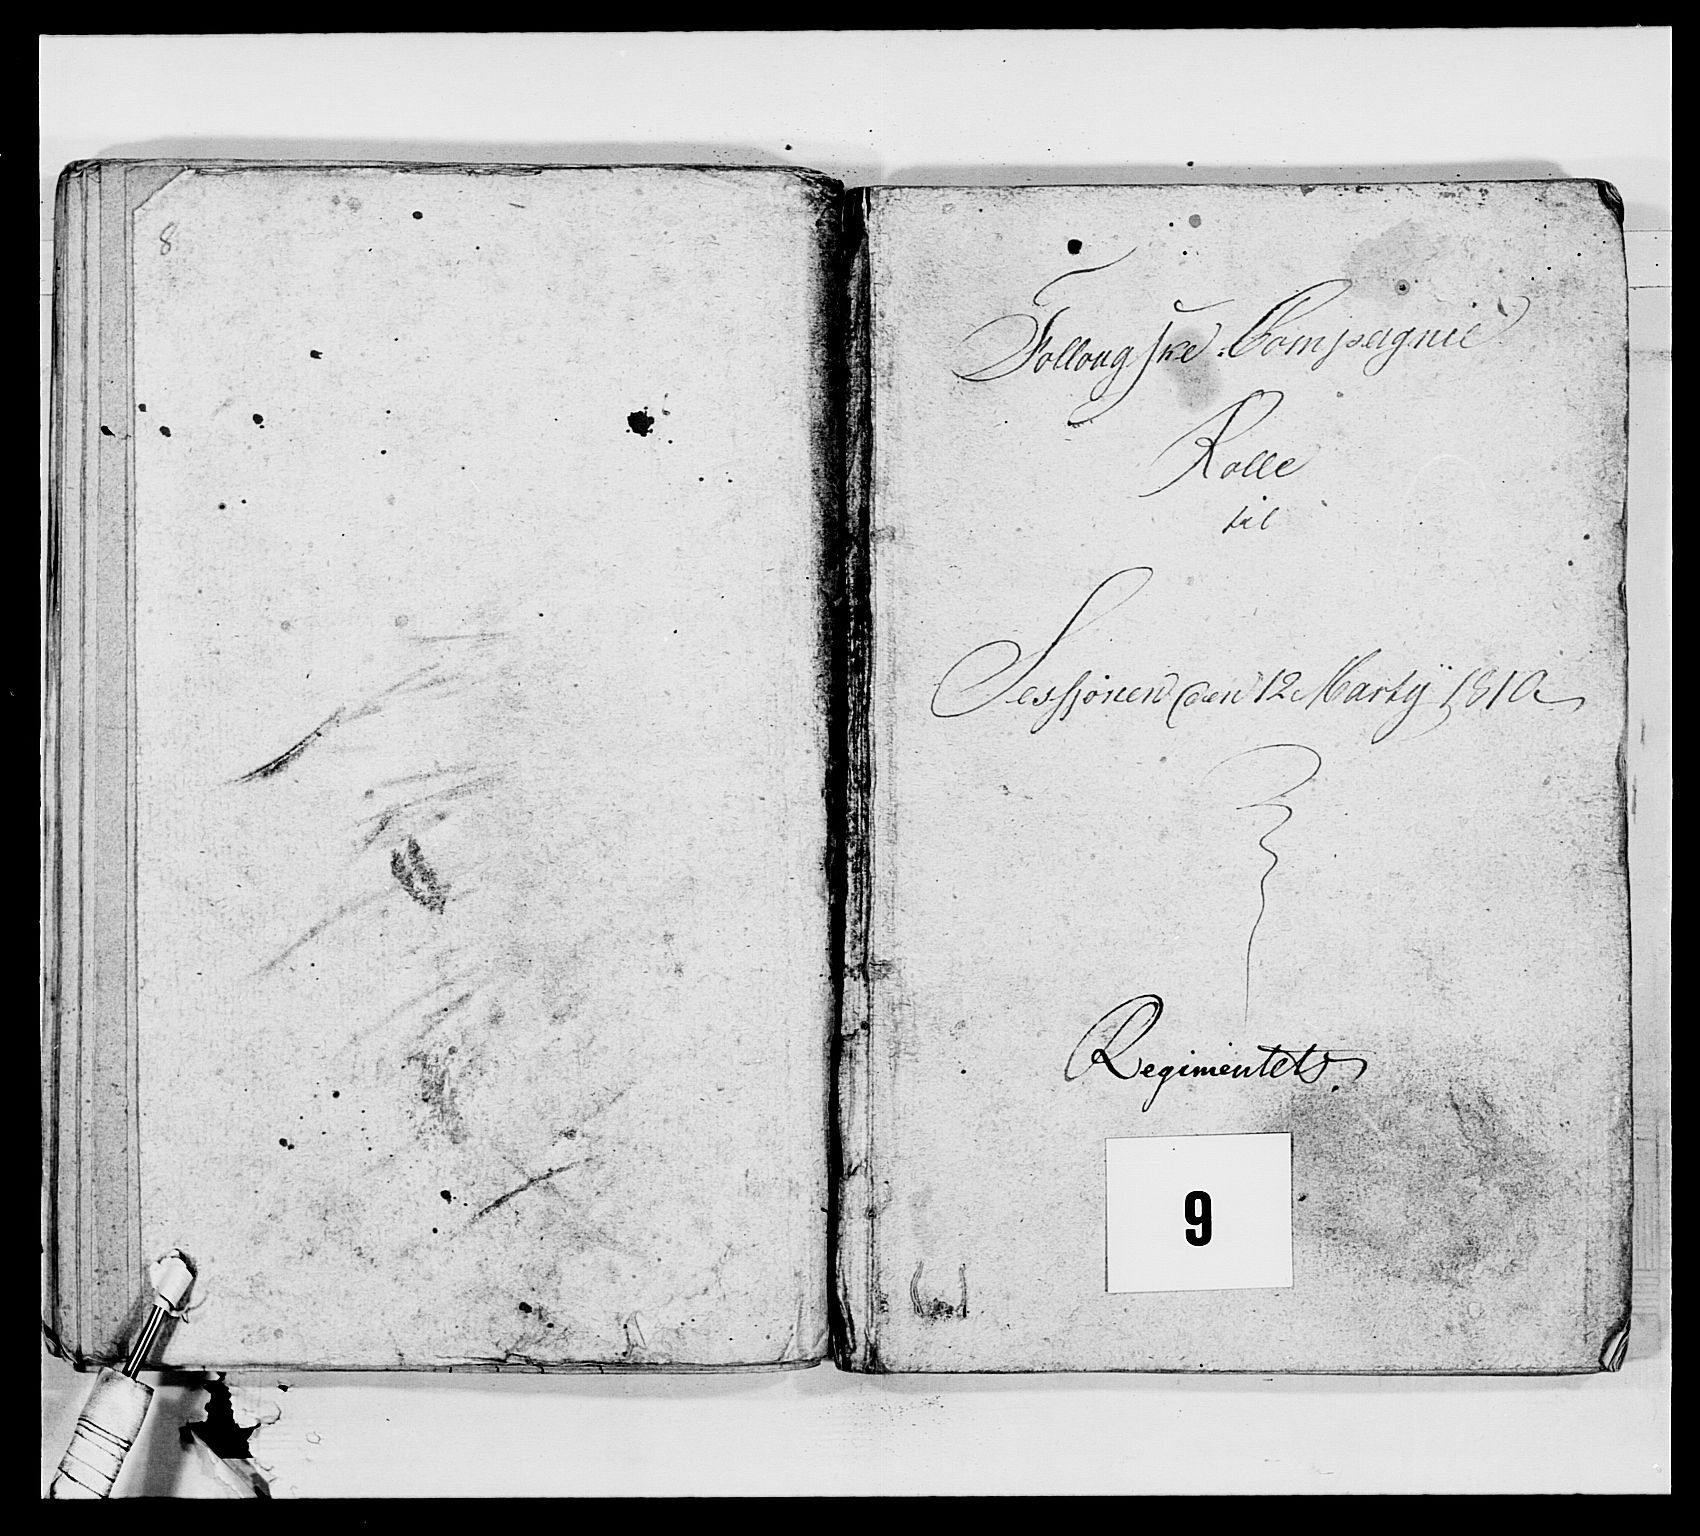 8
Follougske Compagnie
Rolle
til
Sessjonen den 12 Martÿ 1810
Regimentets.
9